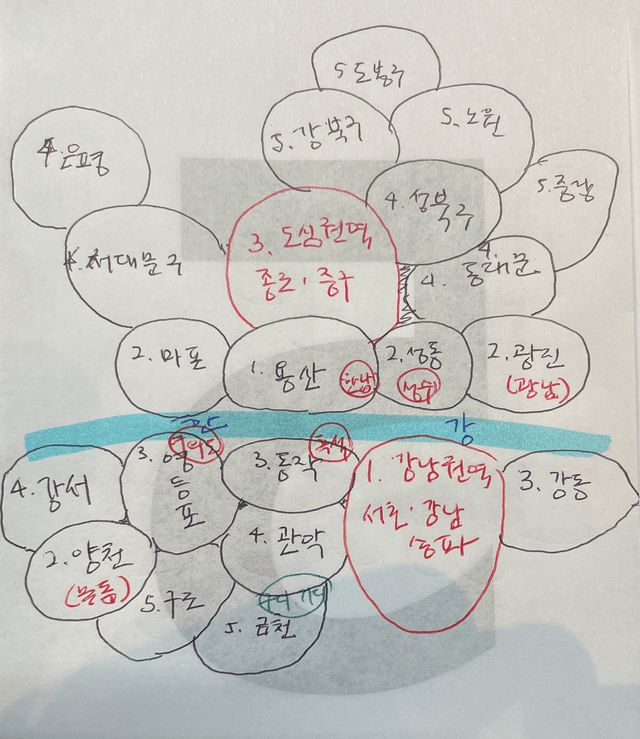 5 도봉구
5. 강북구
5. 노원
4. 은평
4. 성북구
5. 중랑
4. 서대문구
3. 도심권역
종로, 중구
4.
4. 동대문
2. 마포
1. 용산
한남
2. 성동
성수
2. 광진
(광남)
한
강
여의도
흑석
4. 강서
3. 영
등
포
3. 동작
1. 강남권역
서초·강남
송파
3. 강동
2. 양천
(목동)
4. 관악
5. 구로
구디 가디
5. 금천